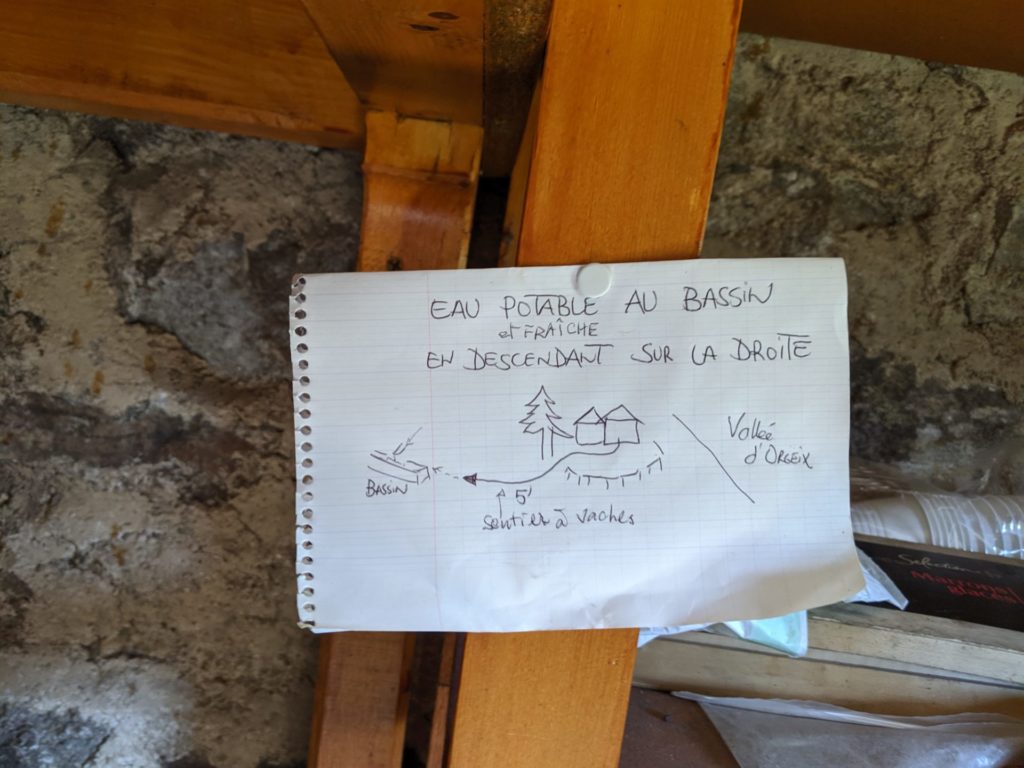 EAU POTABLE AU BASSIN
et FRAÎCHE
EN DESCENDANT SUR LA DROITE
Vallée
d'ORGEIX
BASSIN
5'
Sentier à vaches
Selection
Marrons
Glacés